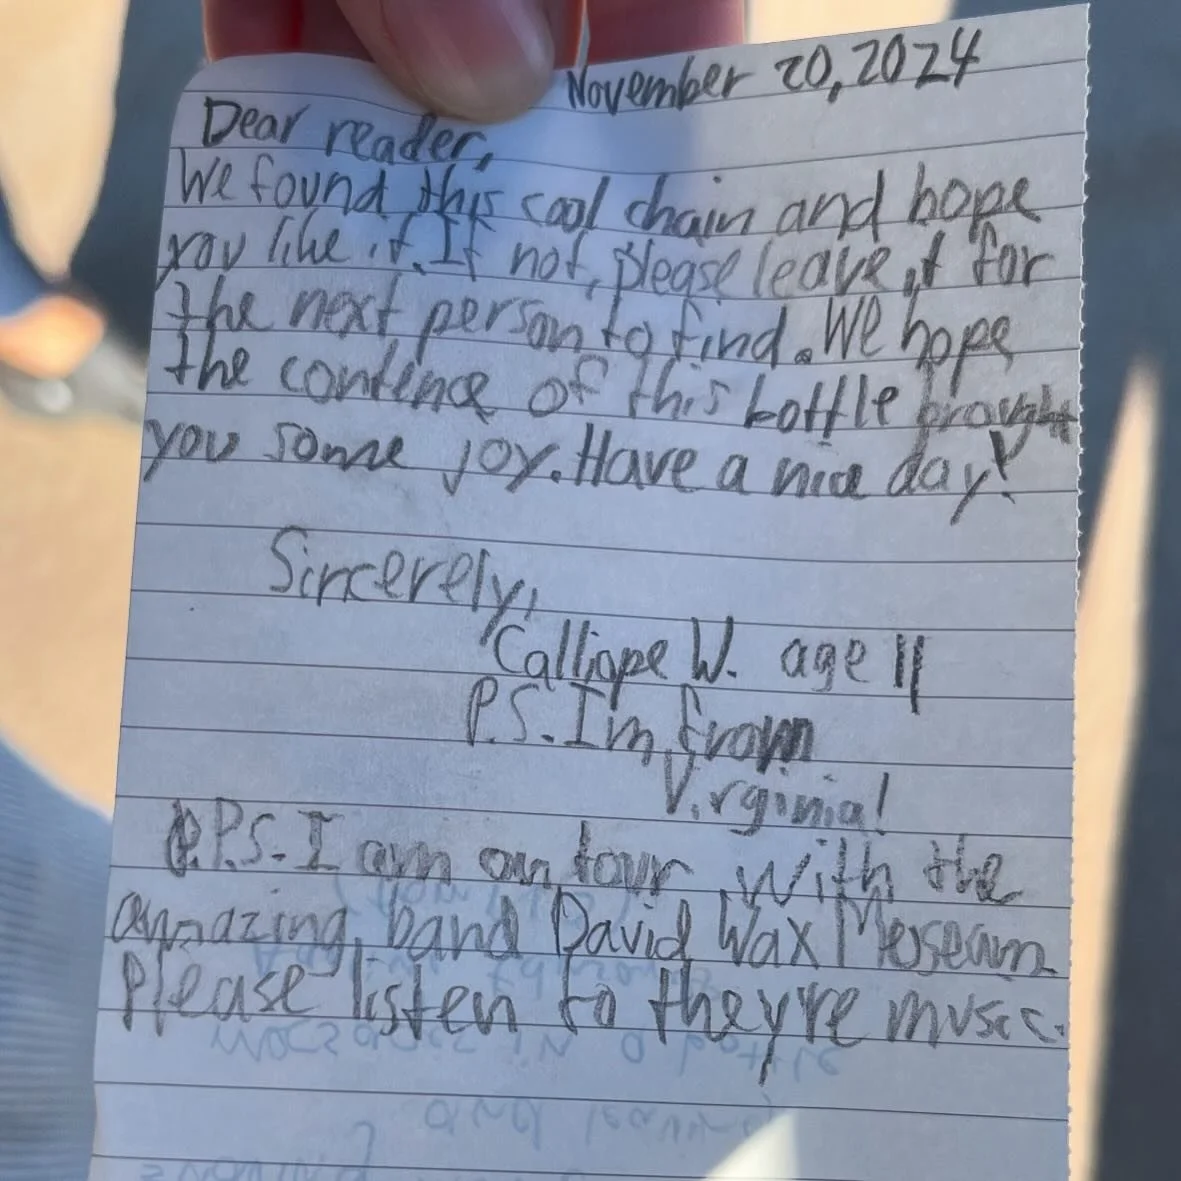 November 20, 2024
Dear reader,
We found this cool chain and hope
you like it. If not, please leave it for
the next person to find. We hope
the contence of this bottle brought
you some joy. Have a nice day!
Sincerely,
Calliope W. age 11
P.S. I'm from
Virginia!
P.P.S. I am on tour with the
amazing band David Wax Meseum
Please listen to they're music.